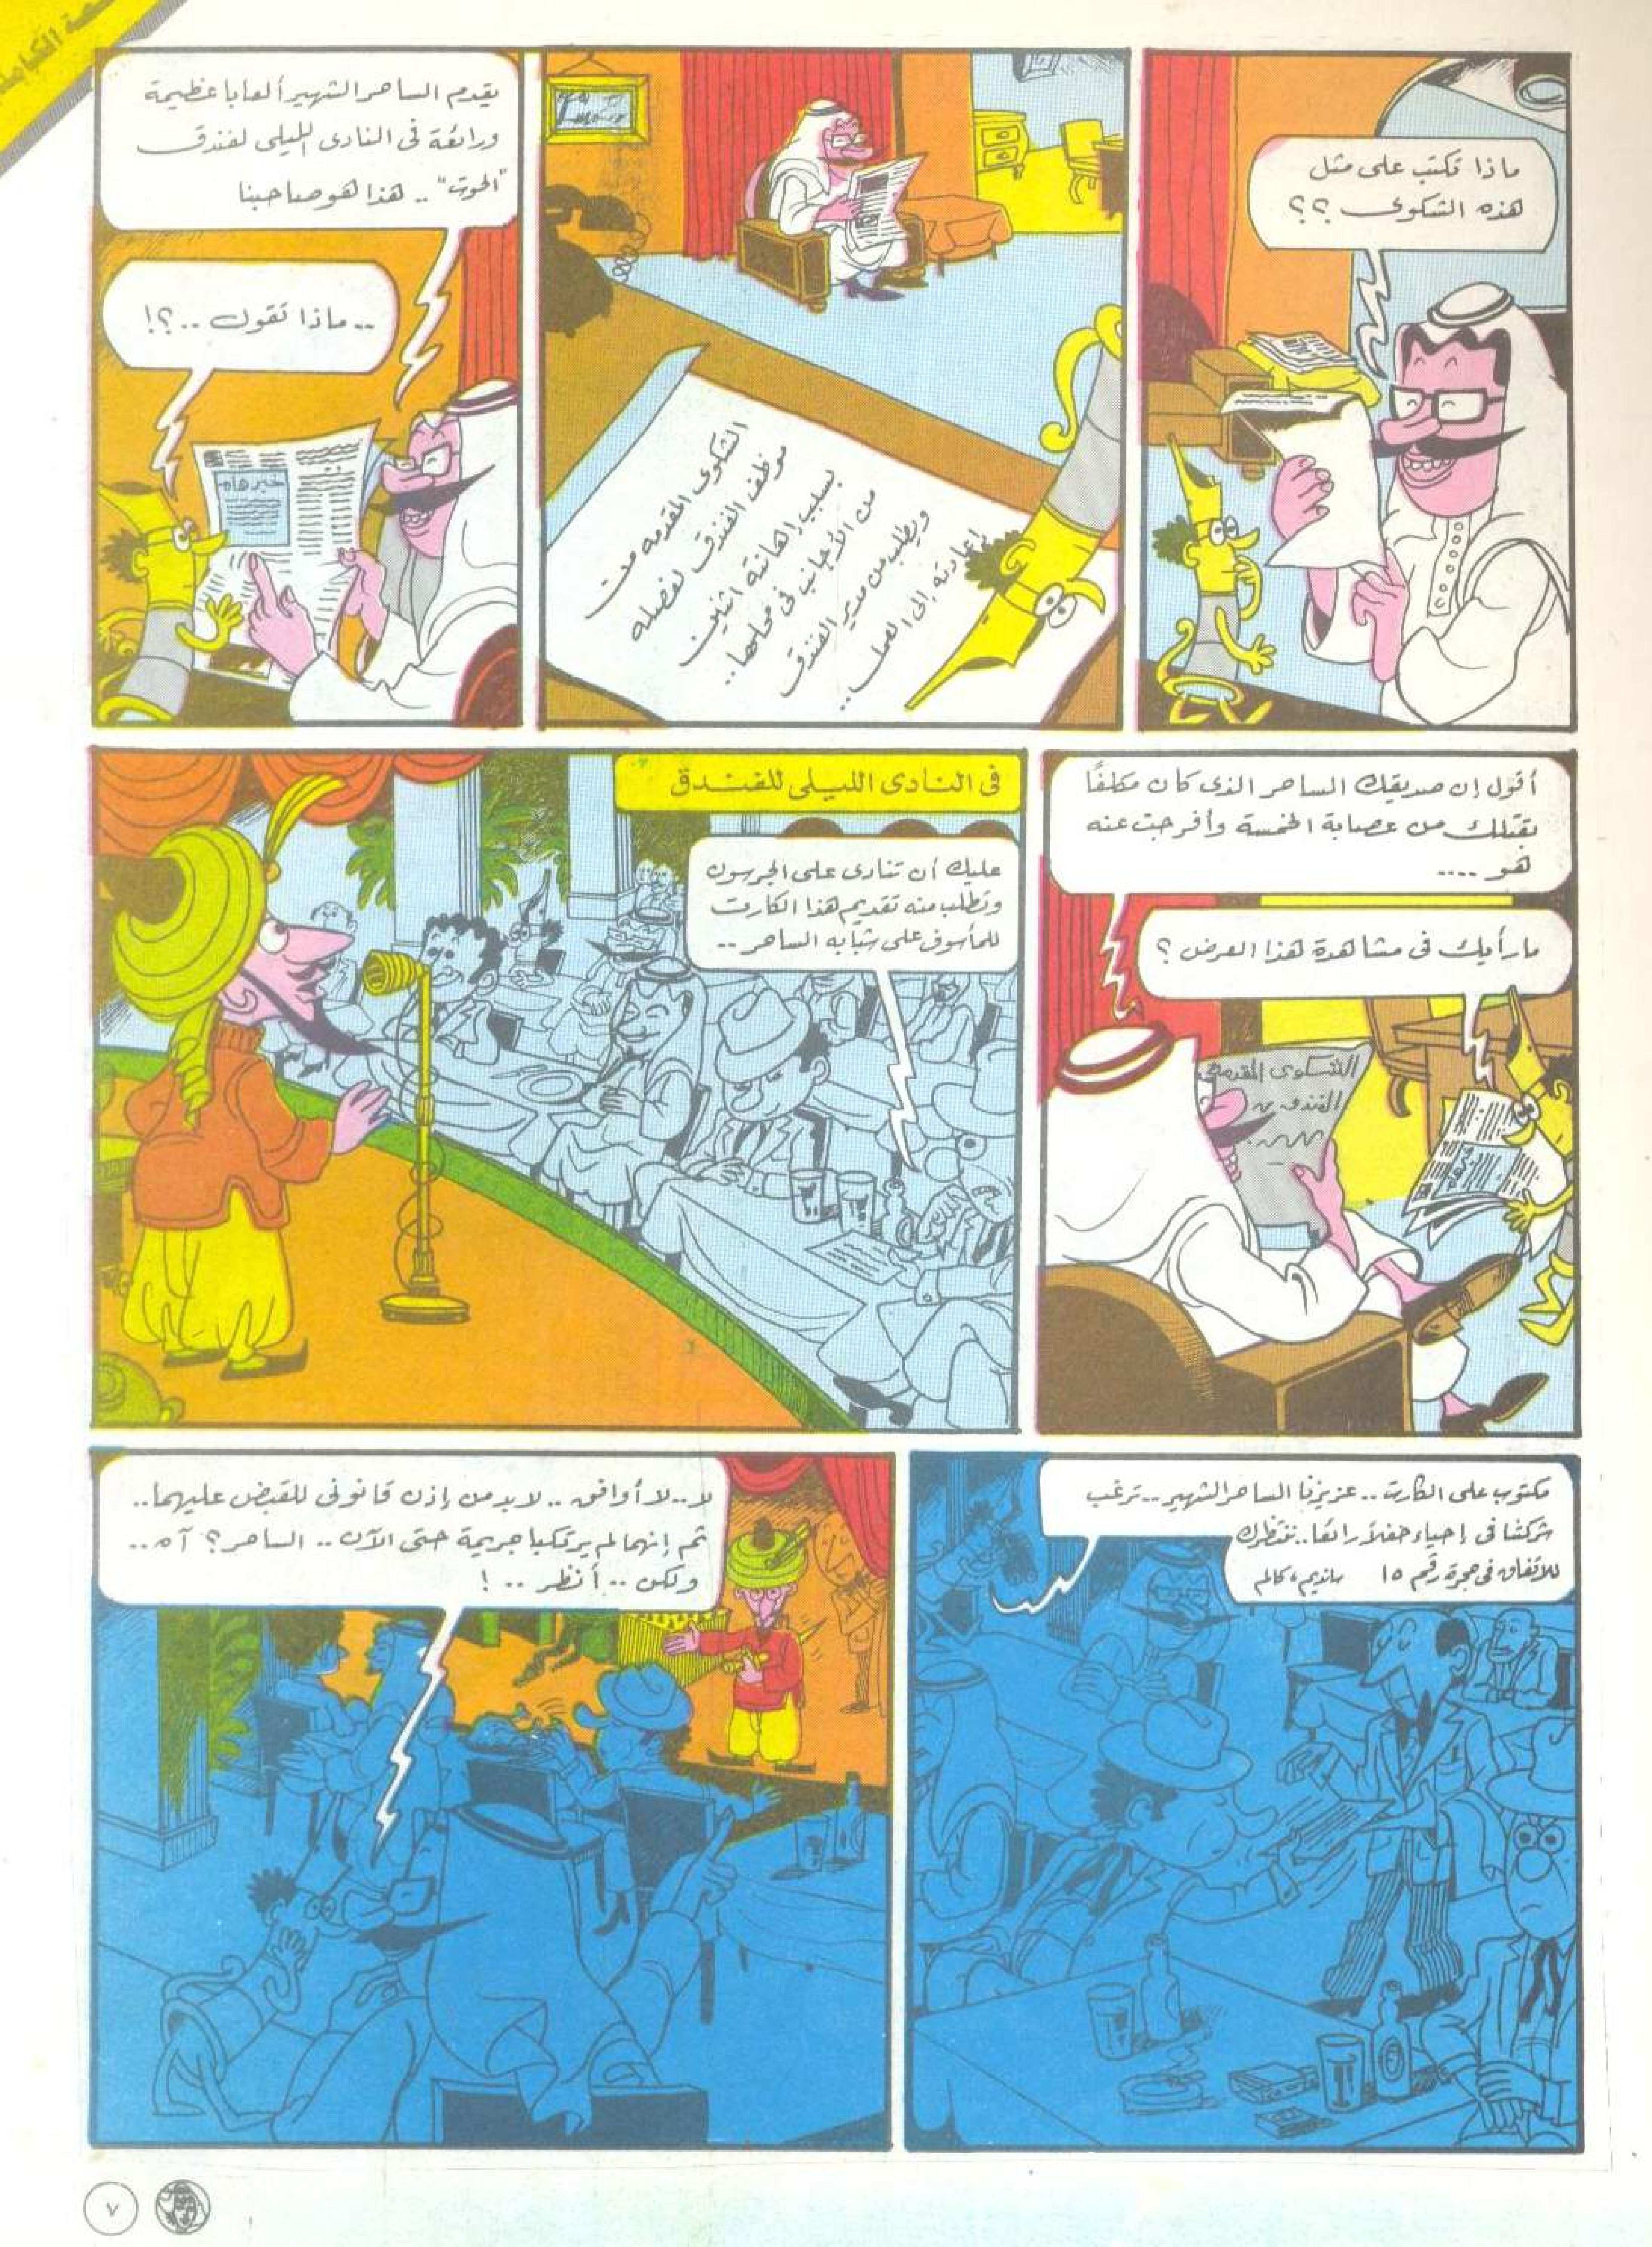 ماذا تكتب على مثل
هذه الشكوى ؟؟
الشكوى المقدمه من
موظف الفندق لفصله
بسبب إهانته اثنين
من الأجانب فى محلهما..
ويطلب من مدير الفندق
إعادته إلى العمل ..
يقدم الساحر الشهير ألعابا عظيمة
ورائعة فى النادى الليلى لفندق
"الحوت" .. هذا هو صاحبنا
خبر هام
.. ماذا تقول ..؟!
أقول إن صديقك الساحر الذى كان مكلفًا
بقتلك من عصابة الخمسة وأفرجت عنه
هو ....
ما رأيك فى مشاهدة هذا العرض ؟
الشكوى المقدمه
الفندق
فى النادى الليلى للفندق
عليك أن تنادى على الجرسون
وتطلب منه تقديم هذا الكارت
للمأسوف على شبابه الساحر ..
مكتوب على الكارت .. عزيزنا الساحر الشهير .. ترغب
شركتنا فى إحياء حفلاً رائعا .. ننتظرك
للاتفاق فى حجرة رقم ١٥
لا .. لا أوافق .. لابد من إذن قانونى للقبض عليهما ..
ثم إنهما لم يرتكبا جريمة حتى الآن .. الساحر ؟ آه ..
ولكن .. أنظر .. !
٧